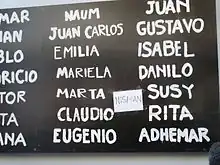 MAR NAUM JUAN
IAN JUAN CARLOS GUSTAVO
BLO EMILIA ISABEL
RICIO MARIELA DANILO
TOR MARTA NISMAN SUSY
TA CLAUDIO RITA
ANA EUGENIO ADHEMAR